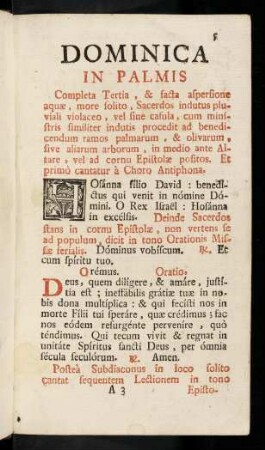 5
DOMINICA
IN PALMIS
Completa Tertia, & facta aſperſione
aquæ, more ſolito, Sacerdos indutus plu-
viali violaceo, vel ſine caſula, cum mini-
ſtris ſimiliter indutis procedit ad benedi-
cendum ramos palmarum, & olivarum,
ſive aliarum arborum, in medio ante Al-
tare, vel ad cornu Epiſtolæ poſitos. Et
primò cantatur à Choro Antiphona.
HOſánna fílio David : benedí-
ctus qui venit in nómine Dó-
mini. O Rex Iſraël : Hoſánna
in excélſis. Deinde Sacerdos
ſtans in cornu Epiſtolæ, non vertens ſe
ad populum, dicit in tono Orationis Miſ-
ſæ ferialis. Dóminus vobíſcum. ℟. Et
cum ſpíritu tuo.
Orémus. Oratio.
DEus, quem dilígere, & amáre, juſtí-
tia eſt ; ineffábilis grátiæ tuæ in no-
bis dona multíplica : & qui feciſti nos in
morte Fílii tui ſperáre, quæ crédimus ; fac
nos eódem reſurgénte perveníre, quò
téndimus. Qui tecum vivit & regnat in
unitáte Spíritus ſancti Deus, per ómnia
ſécula ſeculórum. ℟. Amen.
Poſteà Subdiaconus in loco ſolito
cantat ſequentem Lectionem in tono
A 3 Epiſto-